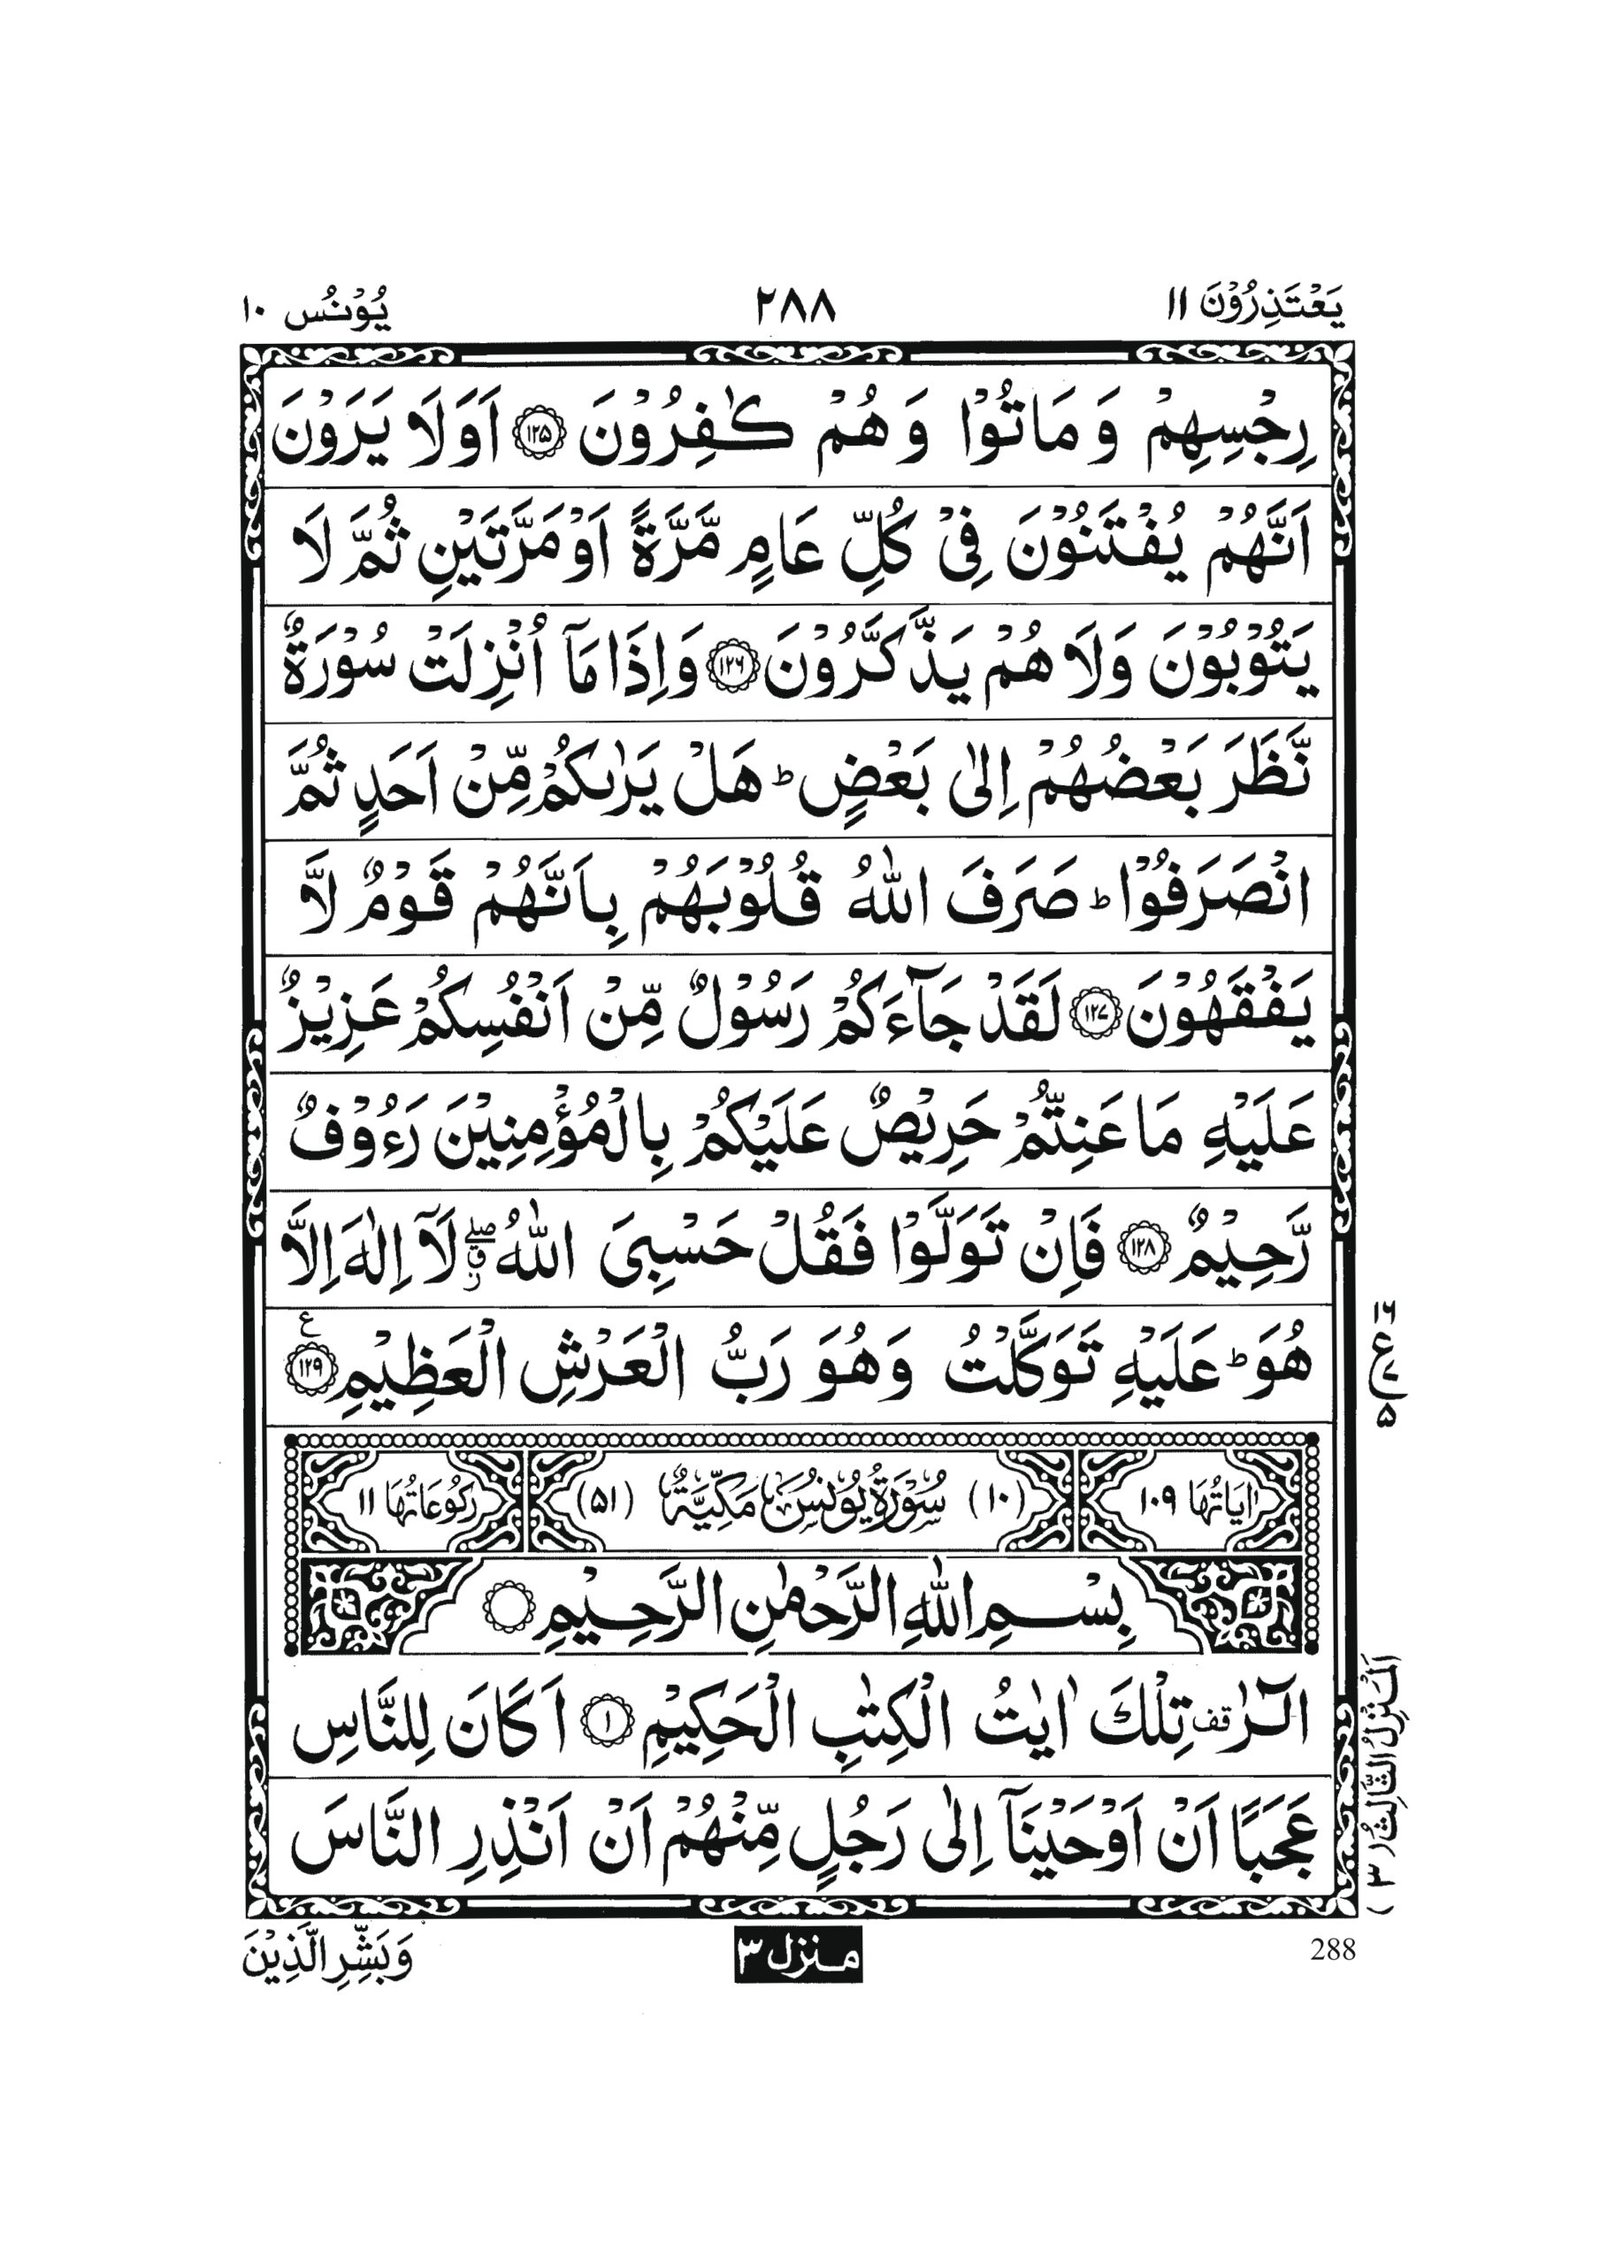 يَعْتَذِرُوْنَ ١١
٢٨٨
يُوْنُس ١٠
رِجْسِهِمْ وَ مَاتُوْا وَ هُمْ كٰفِرُوْنَ ﴿١٢٥﴾ اَوَلَا يَرَوْنَ
اَنَّهُمْ يُفْتَنُوْنَ فِىْ كُلِّ عَامٍ مَّرَّةً اَوْ مَرَّتَيْنِ ثُمَّ لَا
يَتُوْبُوْنَ وَلَا هُمْ يَذَّكَّرُوْنَ ﴿١٢٦﴾ وَاِذَا مَآ اُنْزِلَتْ سُوْرَةٌ
نَّظَرَ بَعْضُهُمْ اِلٰى بَعْضٍ ؕ هَلْ يَرٰىكُمْ مِّنْ اَحَدٍ ثُمَّ
انْصَرَفُوْا ؕ صَرَفَ اللّٰهُ قُلُوْبَهُمْ بِاَنَّهُمْ قَوْمٌ لَّا
يَفْقَهُوْنَ ﴿١٢٧﴾ لَقَدْ جَآءَكُمْ رَسُوْلٌ مِّنْ اَنْفُسِكُمْ عَزِيْزٌ
عَلَيْهِ مَا عَنِتُّمْ حَرِيْصٌ عَلَيْكُمْ بِالْمُؤْمِنِيْنَ رَءُوْفٌ
رَّحِيْمٌ ﴿١٢٨﴾ فَاِنْ تَوَلَّوْا فَقُلْ حَسْبِىَ اللّٰهُ ۖ ق ز لَآ اِلٰهَ اِلَّا
هُوَ ؕ عَلَيْهِ تَوَكَّلْتُ وَهُوَ رَبُّ الْعَرْشِ الْعَظِيْمِ ﴿١٢٩﴾ ع
١٦
ع
٥
اٰيَاتُهَا ١٠٩ (١٠) سُوْرَةُ يُوْنُسَ مَكِّيَّةٌ (٥١) رُكُوْعَاتُهَا ١١
بِسْمِ اللّٰهِ الرَّحْمٰنِ الرَّحِيْمِ
الٓرٰ قف تِلْكَ اٰيٰتُ الْكِتٰبِ الْحَكِيْمِ ﴿١﴾ اَكَانَ لِلنَّاسِ
عَجَبًا اَنْ اَوْحَيْنَآ اِلٰى رَجُلٍ مِّنْهُمْ اَنْ اَنْذِرِ النَّاسَ
اَلْمَنْزِلُ الثَّالِثُ ٣
288
منزل ٣
وَبَشِّرِ الَّذِيْنَ